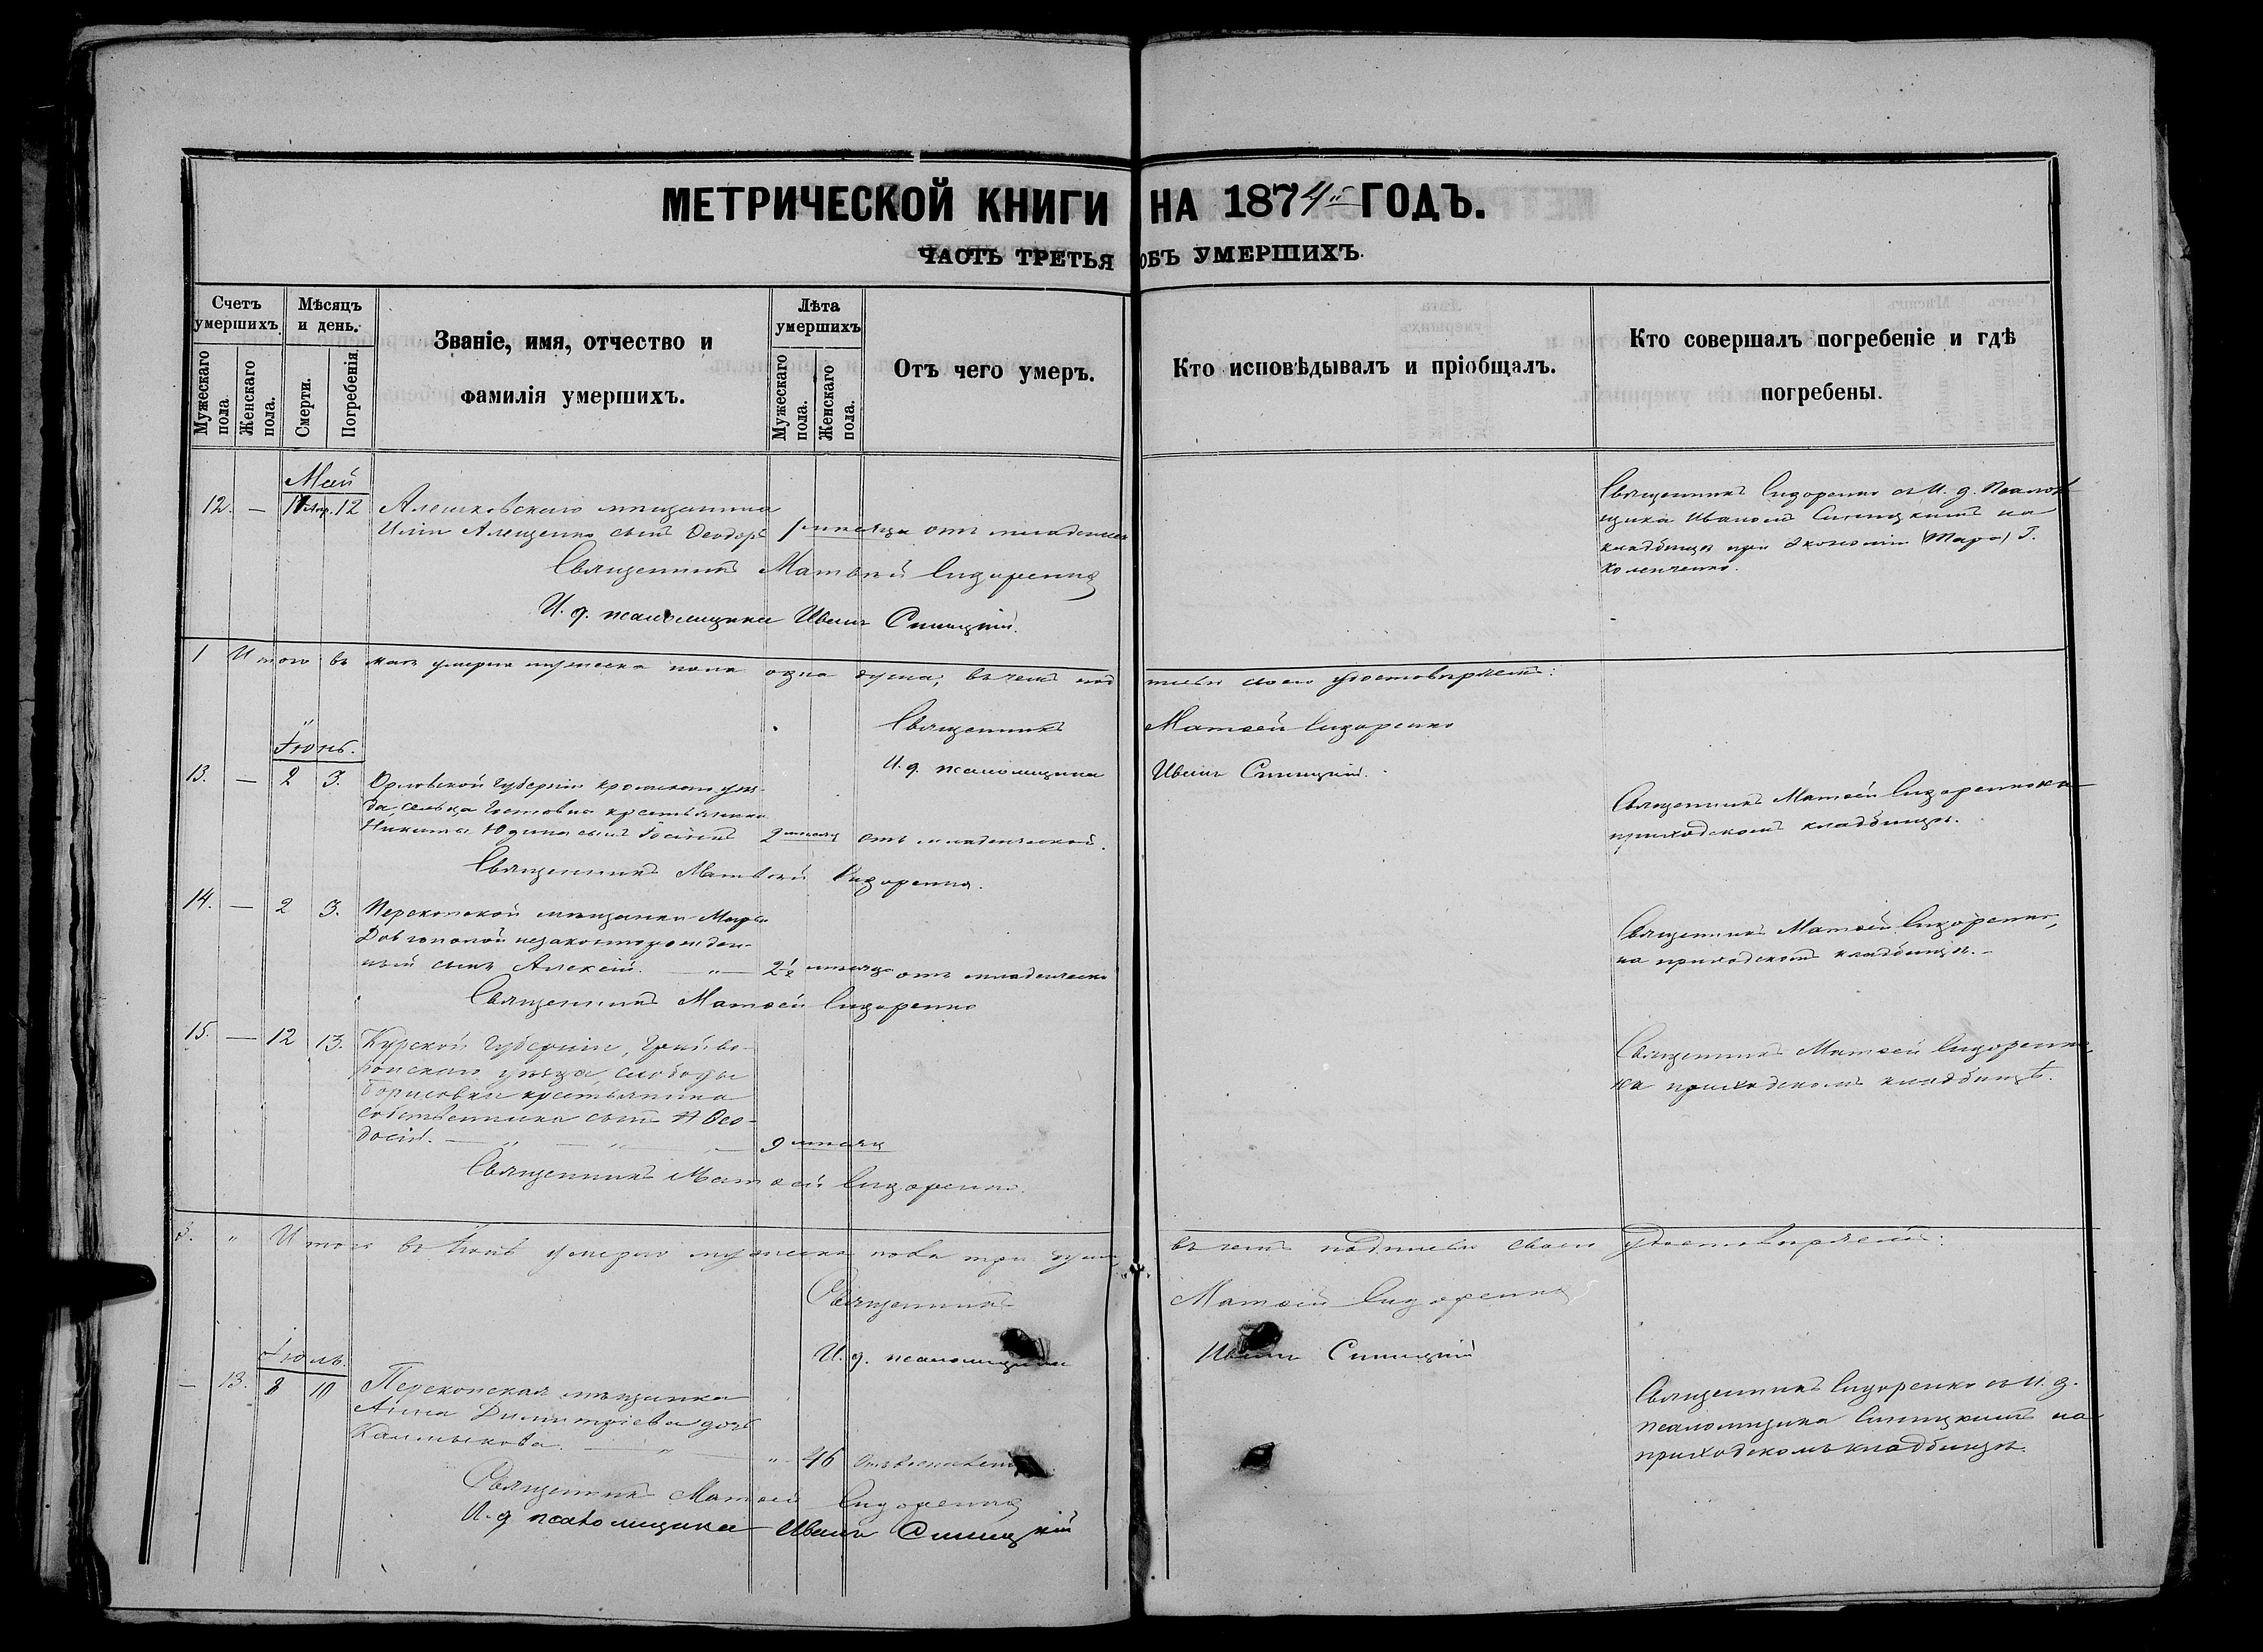 МЕТРИЧЕСКОЙ КНИГИ НА 1874й ГОДЪ.
ЧАСТЬ ТРЕТЬЯ ОБЪ УМЕРШИХЪ.
Счетъ умершихъ.
Мужескаго пола.
Женскаго пола.
Мѣсяцъ и день.
Смерти.
Погребенія.
Званіе, имя, отчество и
фамилія умершихъ.
Лѣта умершихъ
Мужескаго пола.
Женскаго пола.
Отъ чего умеръ.
Кто исповѣдывалъ и пріобщалъ.
Кто совершалъ погребеніе и гдѣ
погребены.
Май
12. — 12 Алешковскаго мѣщанина
Иліи Алещенко сынъ Ѳеодоръ 1 мѣсяца отъ младенческ
Священникъ Матвѣй Сидоренко
И. д. псаломщика Иванъ Синицкій.
Священникъ Сидоренко съ И. д. Псалом
щика Иваномъ Синицкимъ на
кладбищѣ при Экономіи Г.
1 Итого въ маѣ умерло мужеска пола одна душа, въ чемъ под писью своею удостовѣряемъ:
Священникъ Матѳей Сидоренко
И. д. псаломщика Иванъ Синицкій.
Іюнь.
13. — 2 3. Орловской губерніи Кромскаго уѣз-
да, сельца крестьянина
Никиты Юдина сынъ 2 мѣсяц отъ младенческой.
Священникъ Матвѣй Сидоренко.
Священникъ Матѳей Сидоренко на
приходскомъ кладбищѣ.
14. — 2 3. Перекопской мѣщанки Марѳы
Довгополой незаконнорожден-
ный сынъ Алексій. — " — 2½ мѣсяца отъ младенческо
Священникъ Матѳей Сидоренко
Священникъ Матѳей Сидоренко,
на приходскомъ кладбищѣ.
15. — 12 13. Курской губерніи, Грайво-
ронскаго уѣзда, слободы
Борисовки крестьянина
собственника сынъ Ѳео-
досій. — " — " — 9 мѣсяц
Священникъ Матѳей Сидоренко.
Священникъ Матѳей Сидоренко,
на приходскомъ кладбищѣ.
3. " Итого въ Іюнѣ умерло мужеска пола три души въ чемъ подписью своею удостовѣряемъ:
Священникъ Матѳей Сидоренко
И. д. псаломщика Иванъ Синицкій
Іюль.
— 13. 8 10 Перекопская мѣщанка
Анна Димитріева дочь
Калмыкова. — " — " 46
Священникъ Матѳей Сидоренко
И. д псаломщика Иванъ Синицкій
Священникъ Сидоренко съ И. д.
псаломщика Синицкимъ на
приходскомъ кладбищѣ.